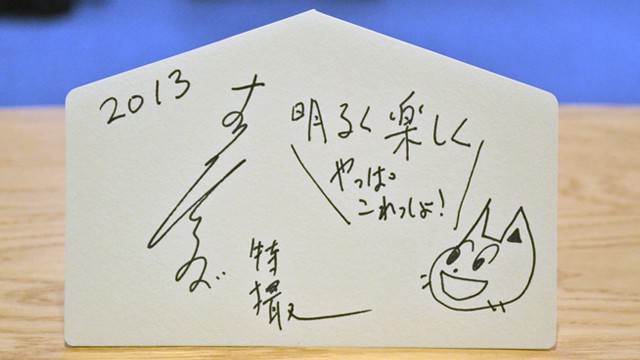 2013
明るく楽しく
やっぱ。
これっしょ!
特撮